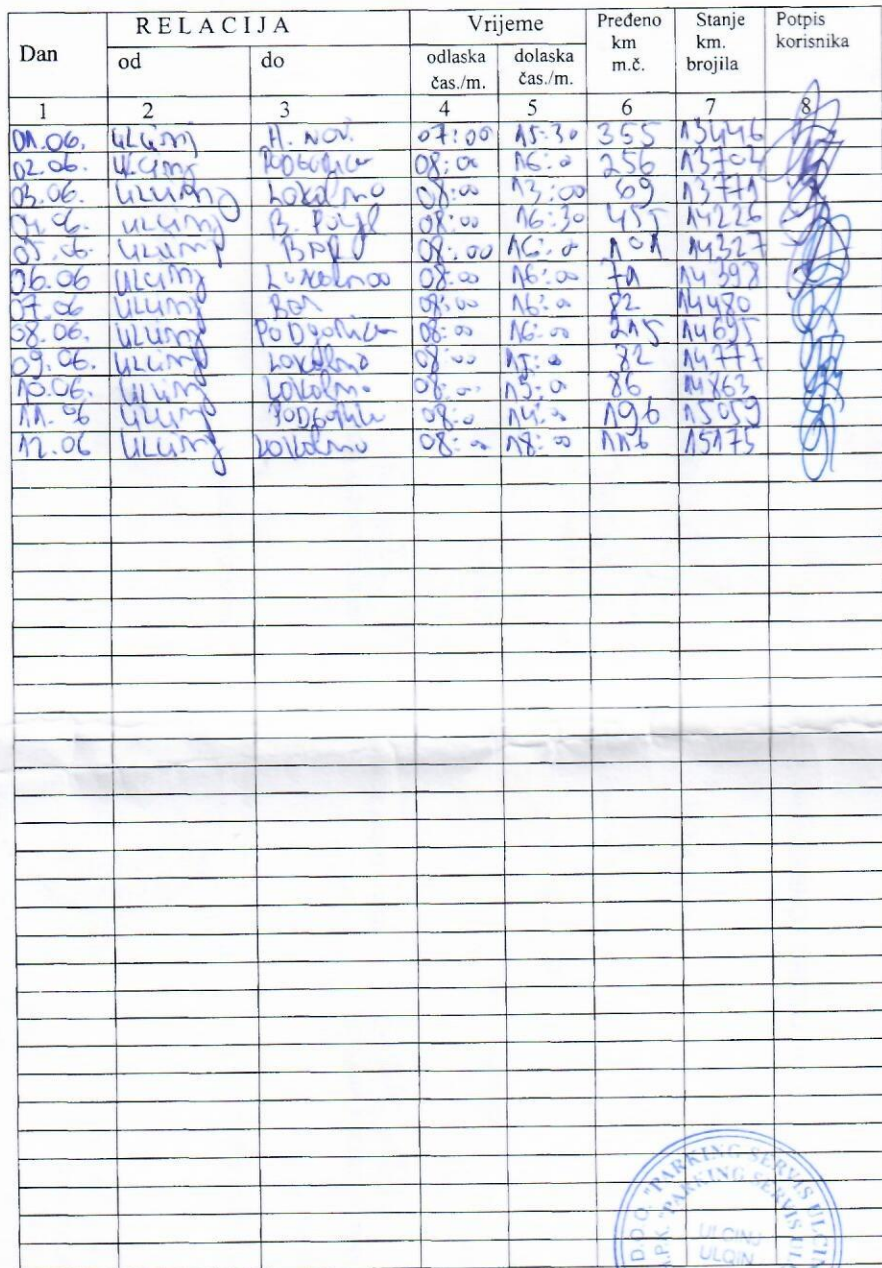 Dan RELACIJA Vrijeme Pređeno km m.č. Stanje km. brojila Potpis korisnika
od do odlaska čas./m. dolaska čas./m.
1 2 3 4 5 6 7 8
01.06. ULCINJ H. NOVI 07:00 15:30 355 13446
02.06. ULCINJ PODGORICA 08:00 16:00 256 13702
03.06. ULCINJ Lokalno 08:00 13:00 69 13771
04.06. ULCINJ B. POLJE 08:00 16:30 455 14226
05.06. ULCINJ BAR 08:00 16:00 101 14327
06.06 ULCINJ Lokalno 08:00 16:00 71 14398
07.06 ULCINJ BAR 08:00 16:00 82 14480
08.06. ULCINJ PODgorica 08:00 16:00 215 14695
09.06. ULCINJ Lokalno 08:00 15:00 82 14777
10.06. ULCINJ Lokalno 08:00 15:00 86 14863
11.06 ULCINJ PODGORICA 08:00 14:00 196 15059
12.06 ULCINJ Lokalno 08:00 18:00 116 15175
D.O.O. "PARKING SERVIS ULCINJ
"PARKING SERVIS UL
ULCINJ
ULQIN